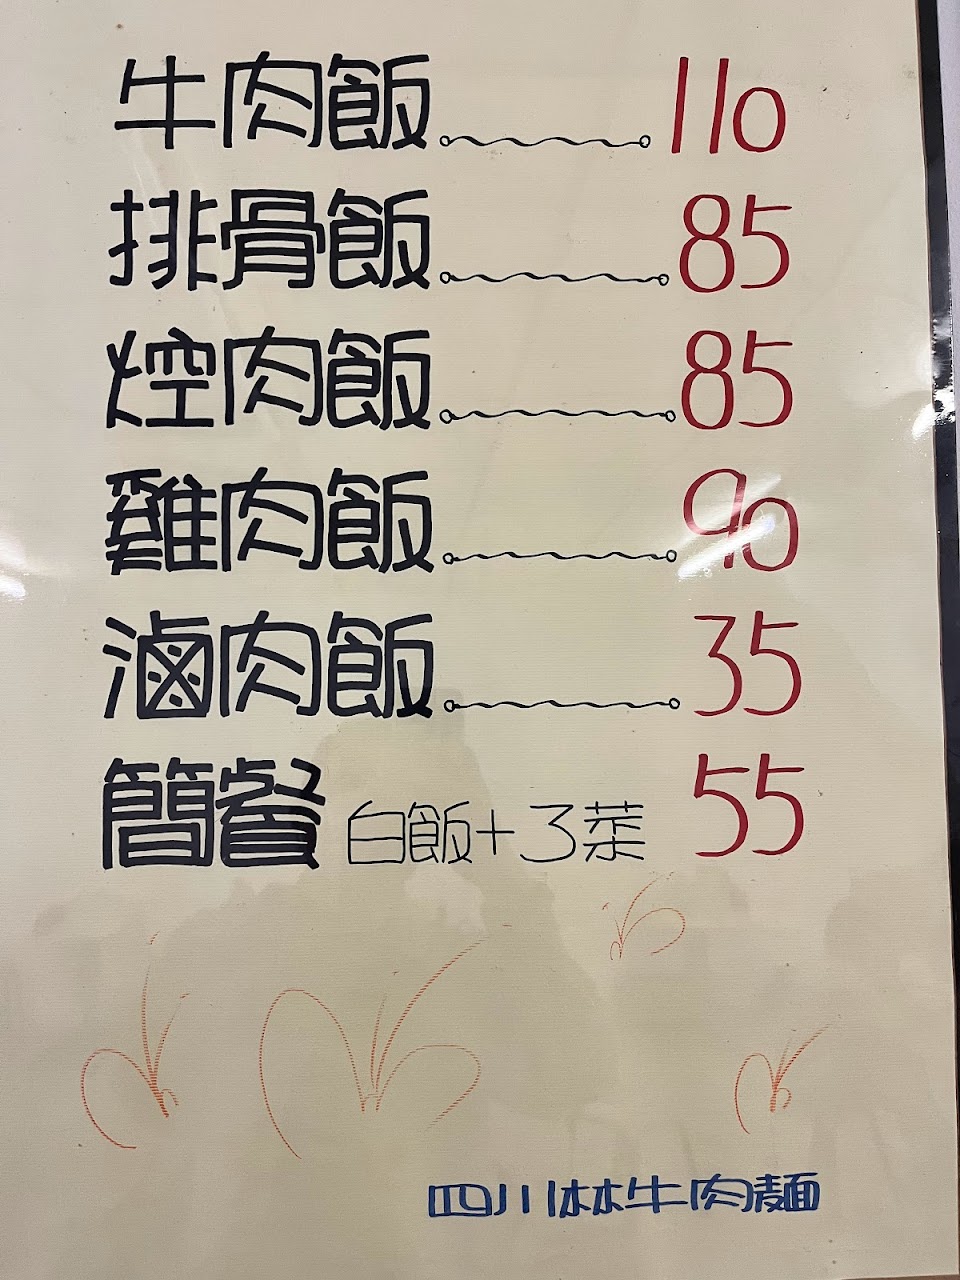 牛肉飯 110
排骨飯 85
焢肉飯 85
雞肉飯 90
滷肉飯 35
簡餐 白飯+3菜 55
四川林牛肉麵